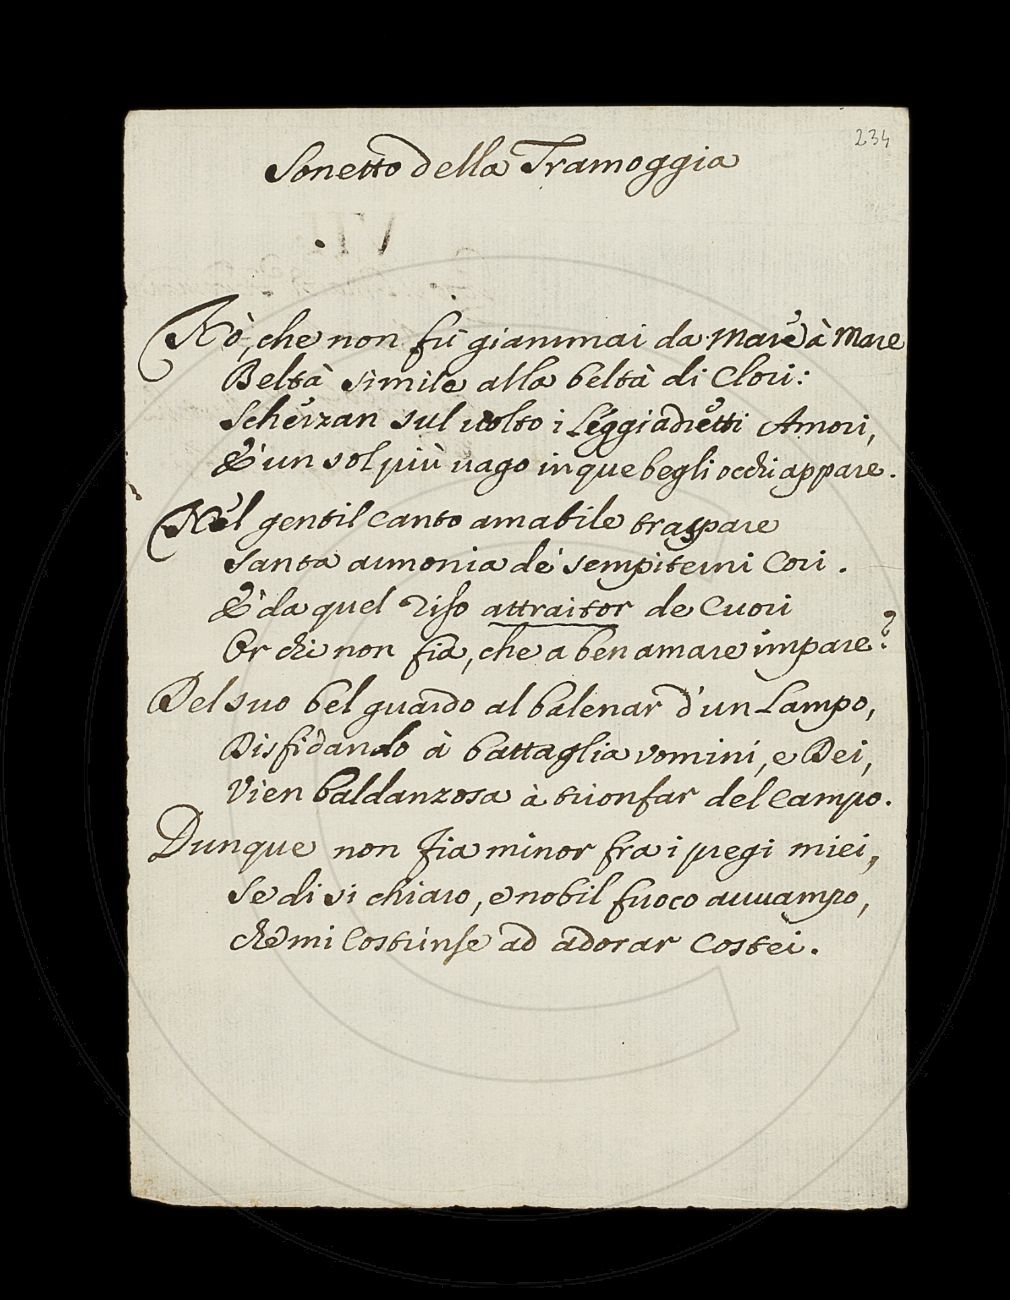 234
Sonetto della Tramoggia
Nò, che non fù giammai da Mare à Mare
Beltà simile alla beltà di Clori:
Scherzan sul uolto i Leggiadretti Amori,
E un sol più uago in que begli occhi appare.
Nel gentil canto amabile traspare
Santa armonia de' sempiterni Cori.
E da quel riso attraitor de Cuori
Or chi non fia, che a ben amare impare?
Del suo bel guardo al balenar d'un Lampo,
Disfidando à battaglia vomini, e Dei,
Vien baldanzosa à trionfar del Campo.
Dunque non fia minor fra i pregi miei,
Se di si chiaro, e nobil fuoco auuampo,
che mi Costrinse ad adorar Costei.